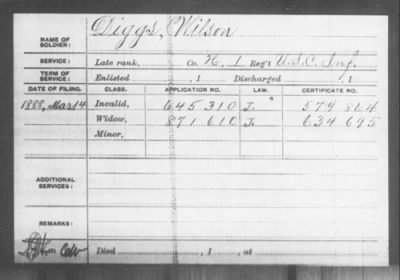 NAME OF SOLDIER: Diggs, Wilson
SERVICE: Late rank, Co. H, 1 Reg't U.S.C. Inf.
TERM OF SERVICE: Enlisted , 1 Discharged , 1
DATE OF FILING. CLASS. APPLICATION NO. LAW. CERTIFICATE NO.
1888, Mar 14 Invalid, 645310 J. 574864
Widow, 871610 J. 634695
Minor,
ADDITIONAL SERVICES:
REMARKS:
Died , 1 , at